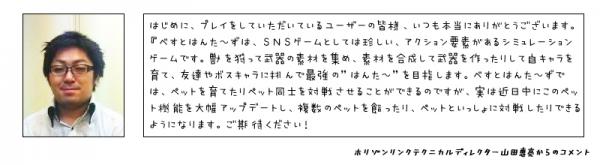 はじめに、プレイをしていただいているユーザーの皆様、いつも本当にありがとうございます。
『べすとはんた〜ずは、SNSゲームとしては珍しい、アクション要素があるシミュレーション
ゲームです。獣を狩って武器の素材を集め、素材を合成して武器を作ったりして自キャラを
育て、友達やボスキャラに挑んで最強の"はんた〜"を目指します。べすとはんた〜ずで
は、ペットを育てたりペット同士を対戦させることができるのですが、実は近日中にこのペッ
ト機能を大幅アップデートし、複数のペットを飼ったり、ペットといっしょに対戦したりできる
ようになります。ご期待ください！
ホリゾンリンクテクニカルディレクター山田
からのコメント